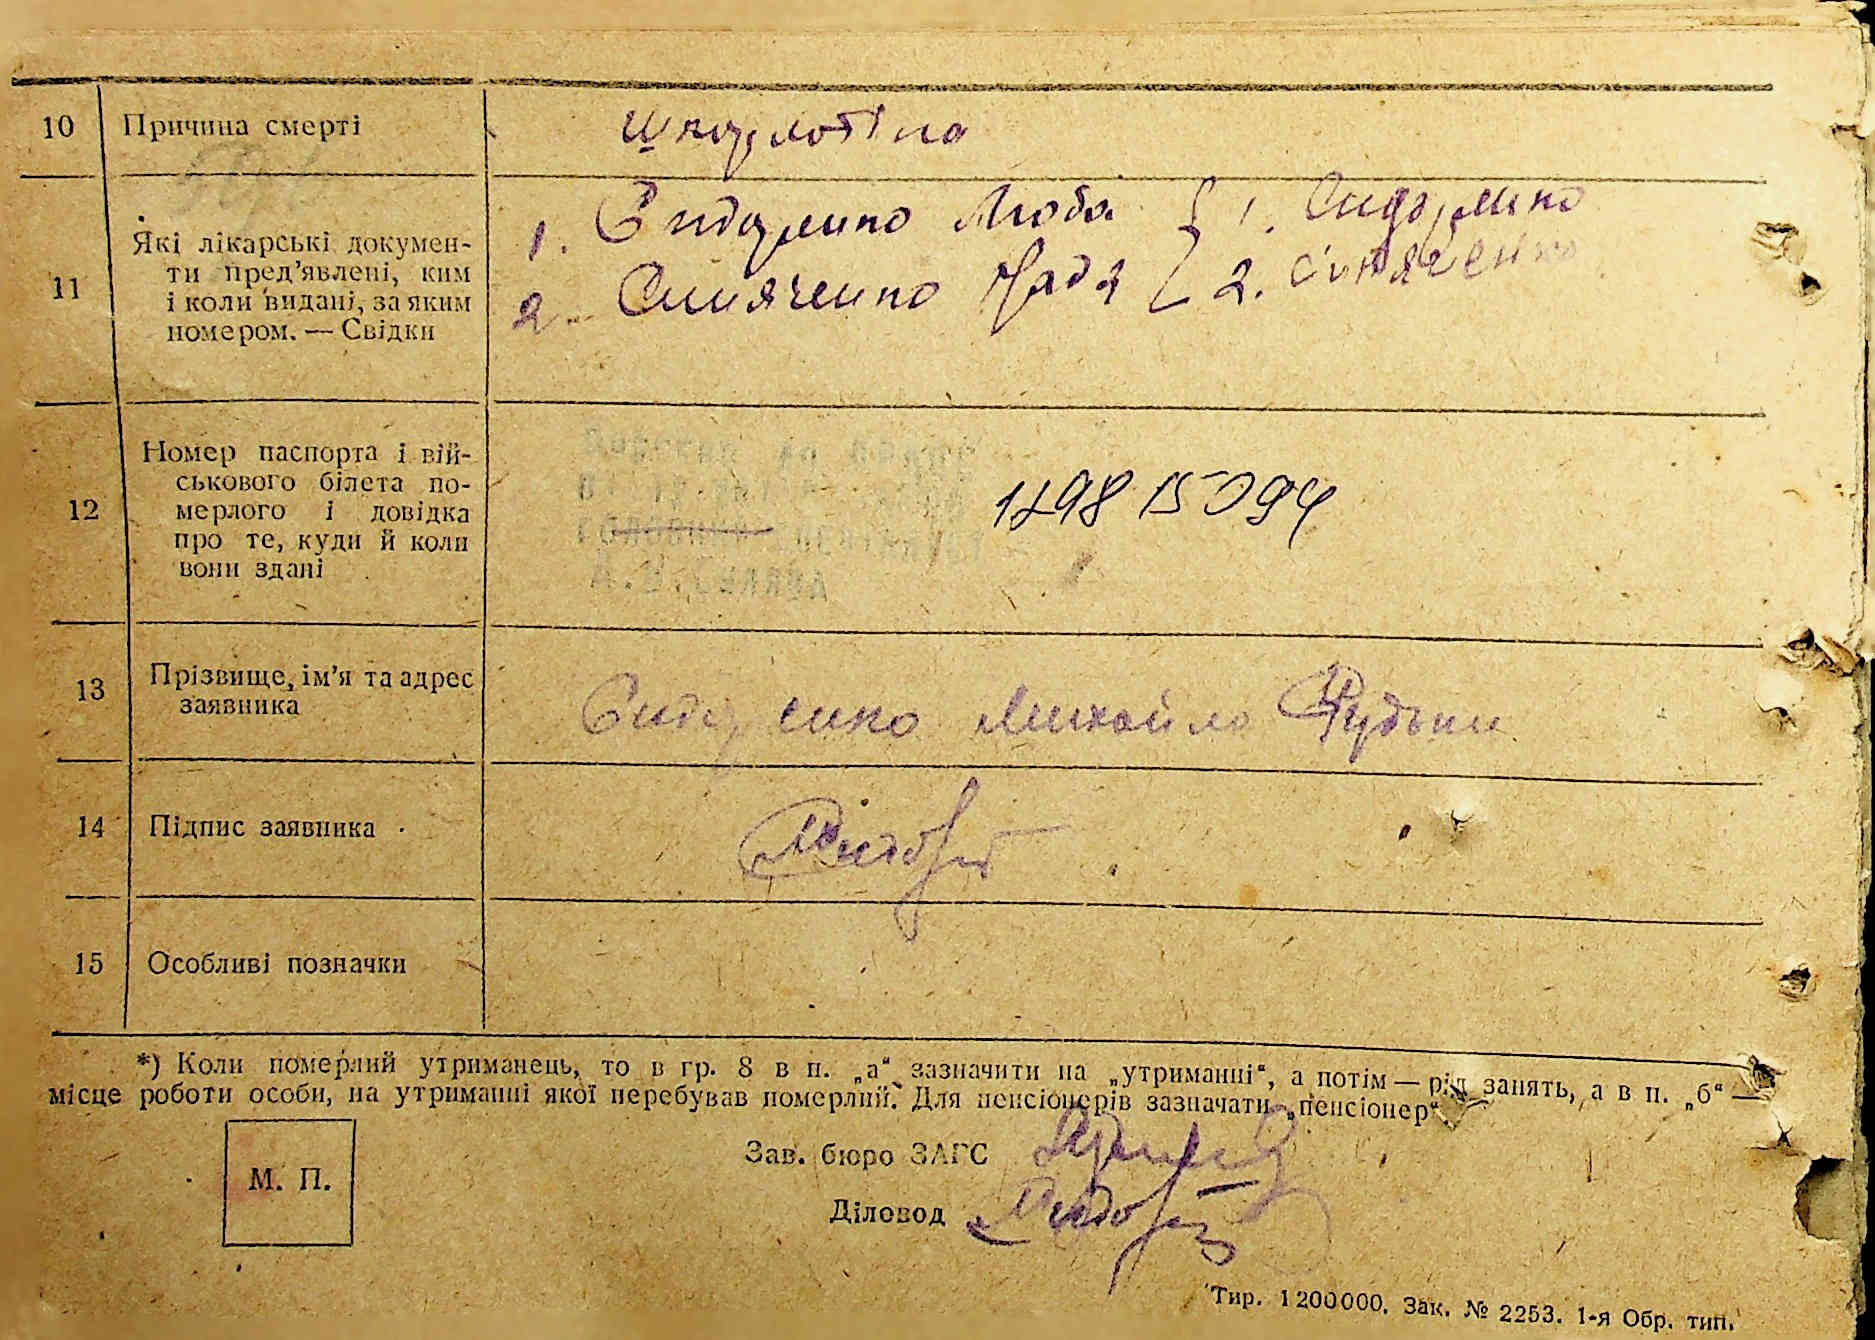 10 Причина смерті Шкарлотіна
11 Які лікарські докумен-
ти пред'явлені, ким
і коли видані, за яким
номером. — Свідки
1. Сидоренко Люба { 1. Сидоренко
2. Синяченко Надя { 2. Синяченко
12 Номер паспорта і вій-
ськового білета по-
мерлого і довідка
про те, куди й коли
вони здані
13 Прізвище, ім'я та адрес
заявника
Сидоренко Михайло
14 Підпис заявника
15 Особливі позначки
*) Коли померлий утриманець, то в гр. 8 в п. „а“ зазначити на „утриманні“, а потім — рід занять, а в п. „б“ —
місце роботи особи, на утриманні якої перебував померлий. Для пенсіонерів зазначати „пенсіонер“
М. П.
Зав. бюро ЗАГС
Діловод
Тир. 1200000. Зак. № 2253. 1-я Обр. тип.